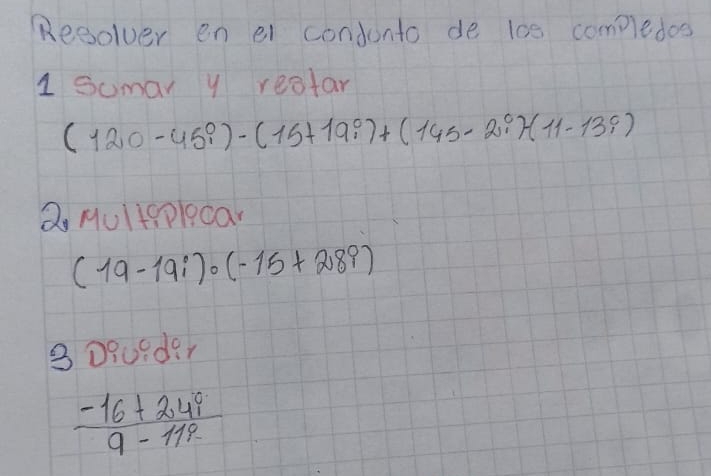 Resolver en el conjunto de los complejos
1 Sumar y restar
(120-45i)-(15+19i)+(145-2i)-(11-13i)
2. Multiplicar
(19-19i)•(-15+28i)
3 Dividir
-16+24i
9-11i